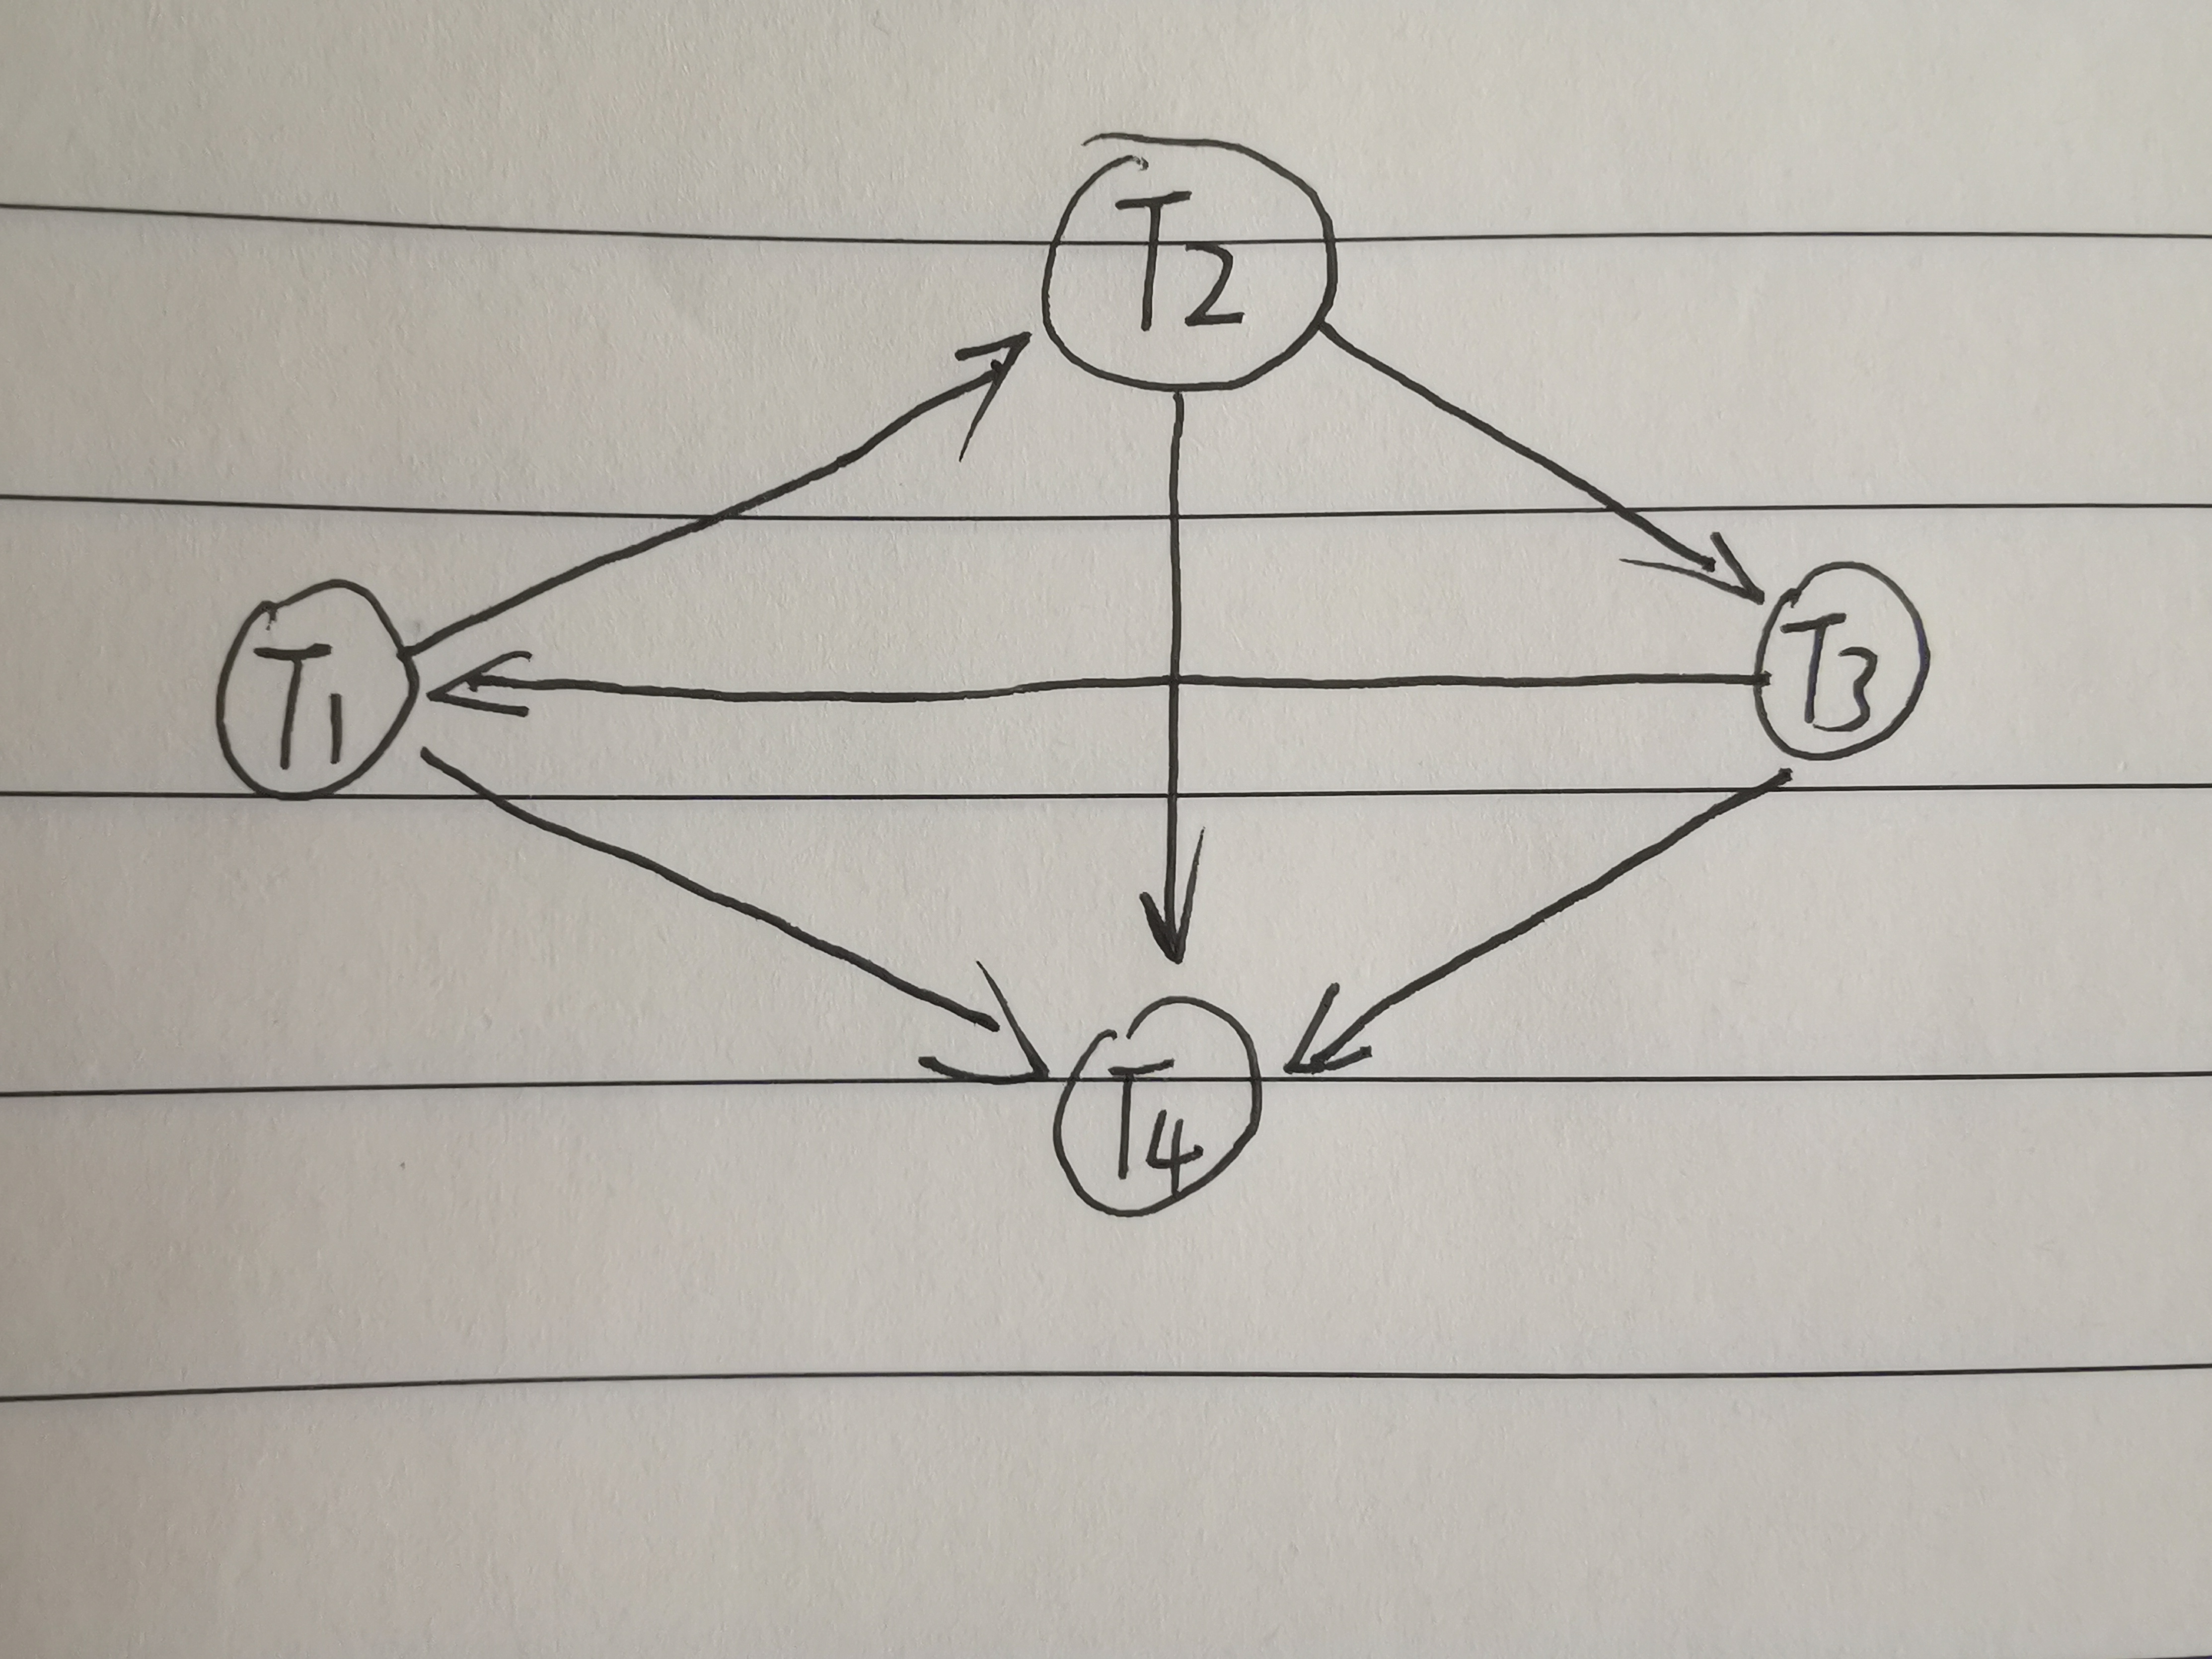 T2
T1
T3
T4